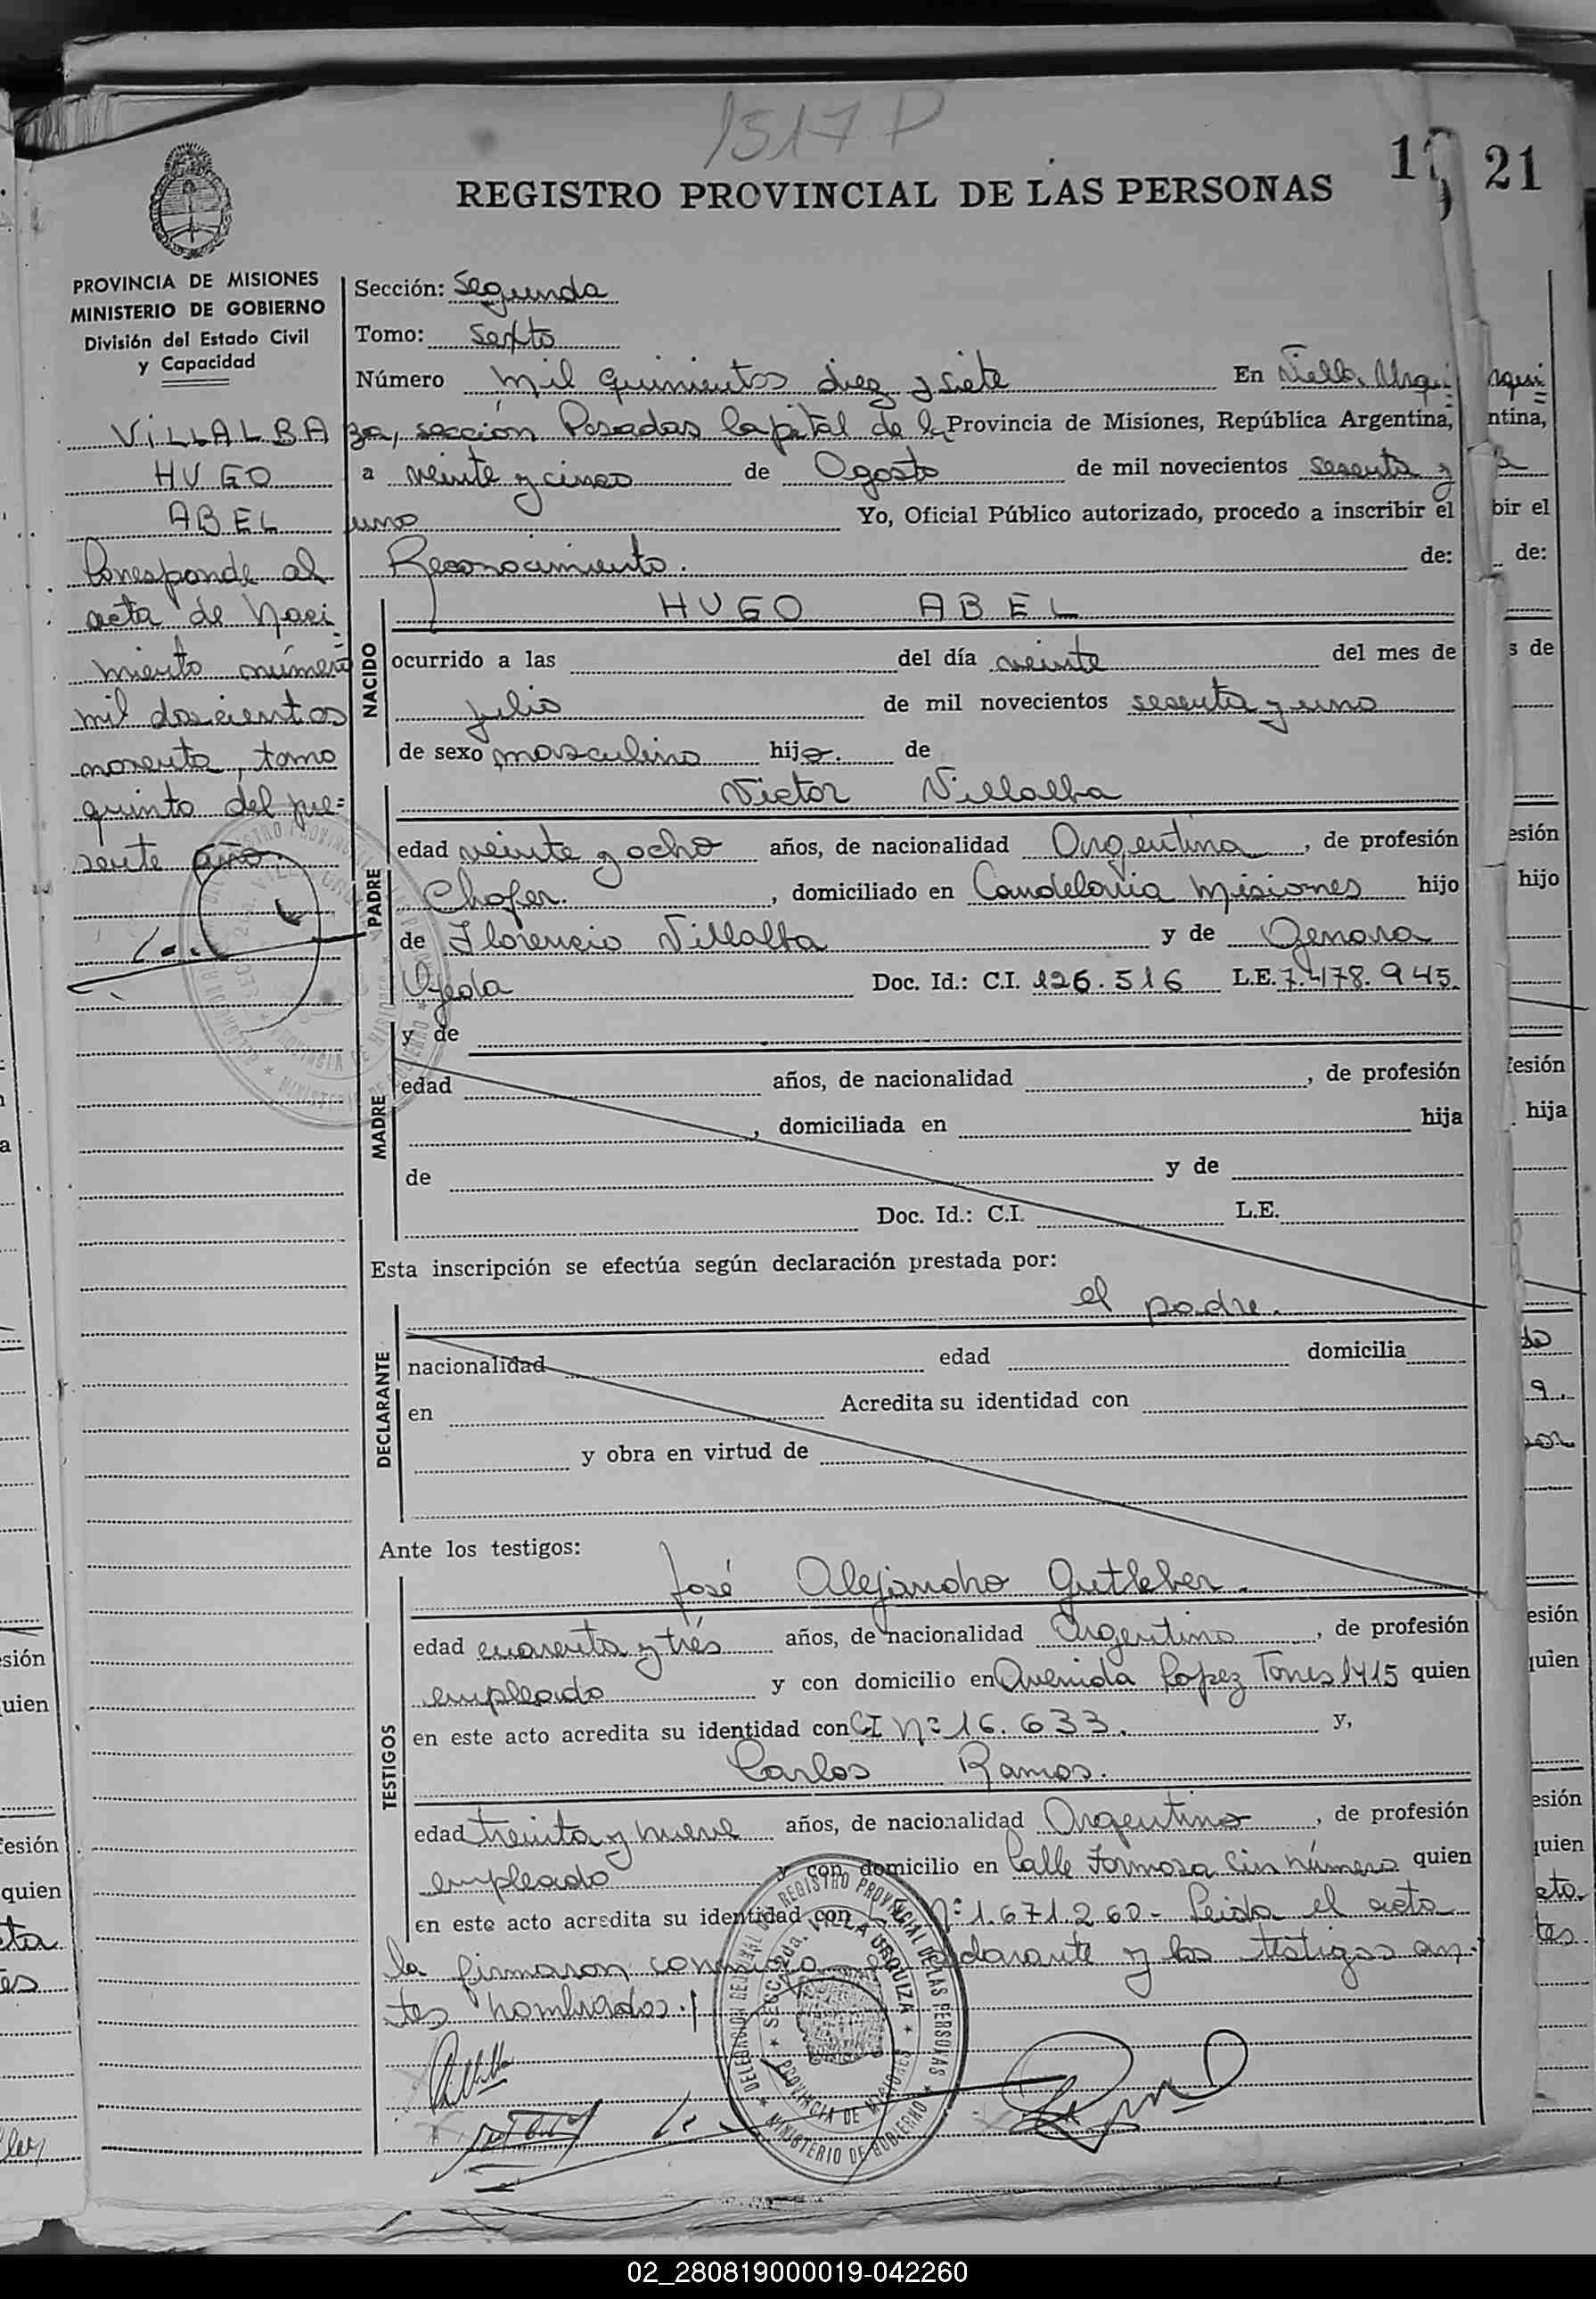 1517 P
REGISTRO PROVINCIAL DE LAS PERSONAS
21
PROVINCIA DE MISIONES
MINISTERIO DE GOBIERNO
División del Estado Civil
y Capacidad
VILLALBA
HUGO
ABEL
Corresponde al
acta de Naci
miento número
mil doscientos
noventa, tomo
quinto del pre=
sente año.
Sección: Segunda
Tomo: Sexto
Número mil quinientos diez y siete En Villa Urqui
za, sección Posadas Capital de la Provincia de Misiones, República Argentina,
a veinte y cinco de Agosto de mil novecientos sesenta y
uno Yo, Oficial Público autorizado, procedo a inscribir el
Reconocimiento. de:
NACIDO
HUGO ABEL
ocurrido a las del día veinte del mes de
julio de mil novecientos sesenta y uno
de sexo masculino hijo. de
PADRE
Victor Villalba
edad veinte y ocho años, de nacionalidad Argentina, de profesión
Chofer. , domiciliado en Candelaria Misiones hijo
de Florencio Villalba y de Genara
Ojeda Doc. Id.: C.I. 126.516 L.E. 7.478.945.
MADRE
y de
edad años, de nacionalidad , de profesión
, domiciliada en hija
de y de
Doc. Id.: C.I. L.E.
Esta inscripción se efectúa según declaración prestada por:
el padre.
DECLARANTE
nacionalidad edad domicilia
en Acredita su identidad con
y obra en virtud de
Ante los testigos:
TESTIGOS
José Alejandro Gutleber.
edad cuarenta y trés años, de nacionalidad Argentino , de profesión
empleado y con domicilio en Avenida Lopez Torres 1415 quien
en este acto acredita su identidad con CI Nº 16.633. y,
Carlos Ramos.
edad treinta y nueve años, de nacionalidad Argentino , de profesión
empleado y con domicilio en Calle Formosa Sin número quien
en este acto acredita su identidad con Nº 1.671.260- Leida el acta
la firmaron conmigo el declarante y los testigos an-
tes nombrados.
DELEGACION REGIONAL DEL REGISTRO PROVINCIAL DE LAS PERSONAS
SECC. 2da. VILLA URQUIZA
PROVINCIA DE MISIONES
MINISTERIO DE GOBIERNO
02_280819000019-042260